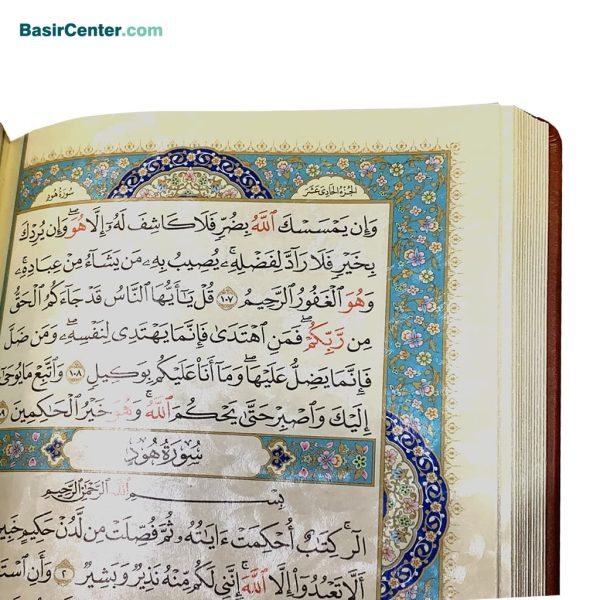 BasirCenter.com
الجزء الحادي عشر
سورة هود
وَإِن يَمْسَسْكَ اللَّهُ بِضُرٍّ فَلَا كَاشِفَ لَهُۥٓ إِلَّا هُوَ ۖ وَإِن يُرِدْكَ
بِخَيْرٍ فَلَا رَآدَّ لِفَضْلِهِۦ ۚ يُصِيبُ بِهِۦ مَن يَشَآءُ مِنْ عِبَادِهِۦ ۚ
وَهُوَ الْغَفُورُ الرَّحِيمُ ١٠٧ قُلْ يَٰٓأَيُّهَا النَّاسُ قَدْ جَآءَكُمُ الْحَقُّ
مِن رَّبِّكُمْ ۖ فَمَنِ اهْتَدَىٰ فَإِنَّمَا يَهْتَدِى لِنَفْسِهِۦ ۖ وَمَن ضَلَّ
فَإِنَّمَا يَضِلُّ عَلَيْهَا ۖ وَمَآ أَنَا۠ عَلَيْكُم بِوَكِيلٍ ١٠٨ وَاتَّبِعْ مَا يُوحَىٰٓ
إِلَيْكَ وَاصْبِرْ حَتَّىٰ يَحْكُمَ اللَّهُ ۚ وَهُوَ خَيْرُ الْحَاكِمِينَ ١٠٩
سُورَةُ هُودٍ
بِسْمِ اللَّهِ الرَّحْمَٰنِ الرَّحِيمِ
الٓر ۚ كِتَابٌ أُحْكِمَتْ ءَايَاتُهُۥ ثُمَّ فُصِّلَتْ مِن لَّدُنْ حَكِيمٍ خَبِيرٍ
أَلَّا تَعْبُدُوٓا۟ إِلَّا اللَّهَ ۚ إِنَّنِى لَكُم مِّنْهُ نَذِيرٌ وَبَشِيرٌ ٢ وَأَنِ